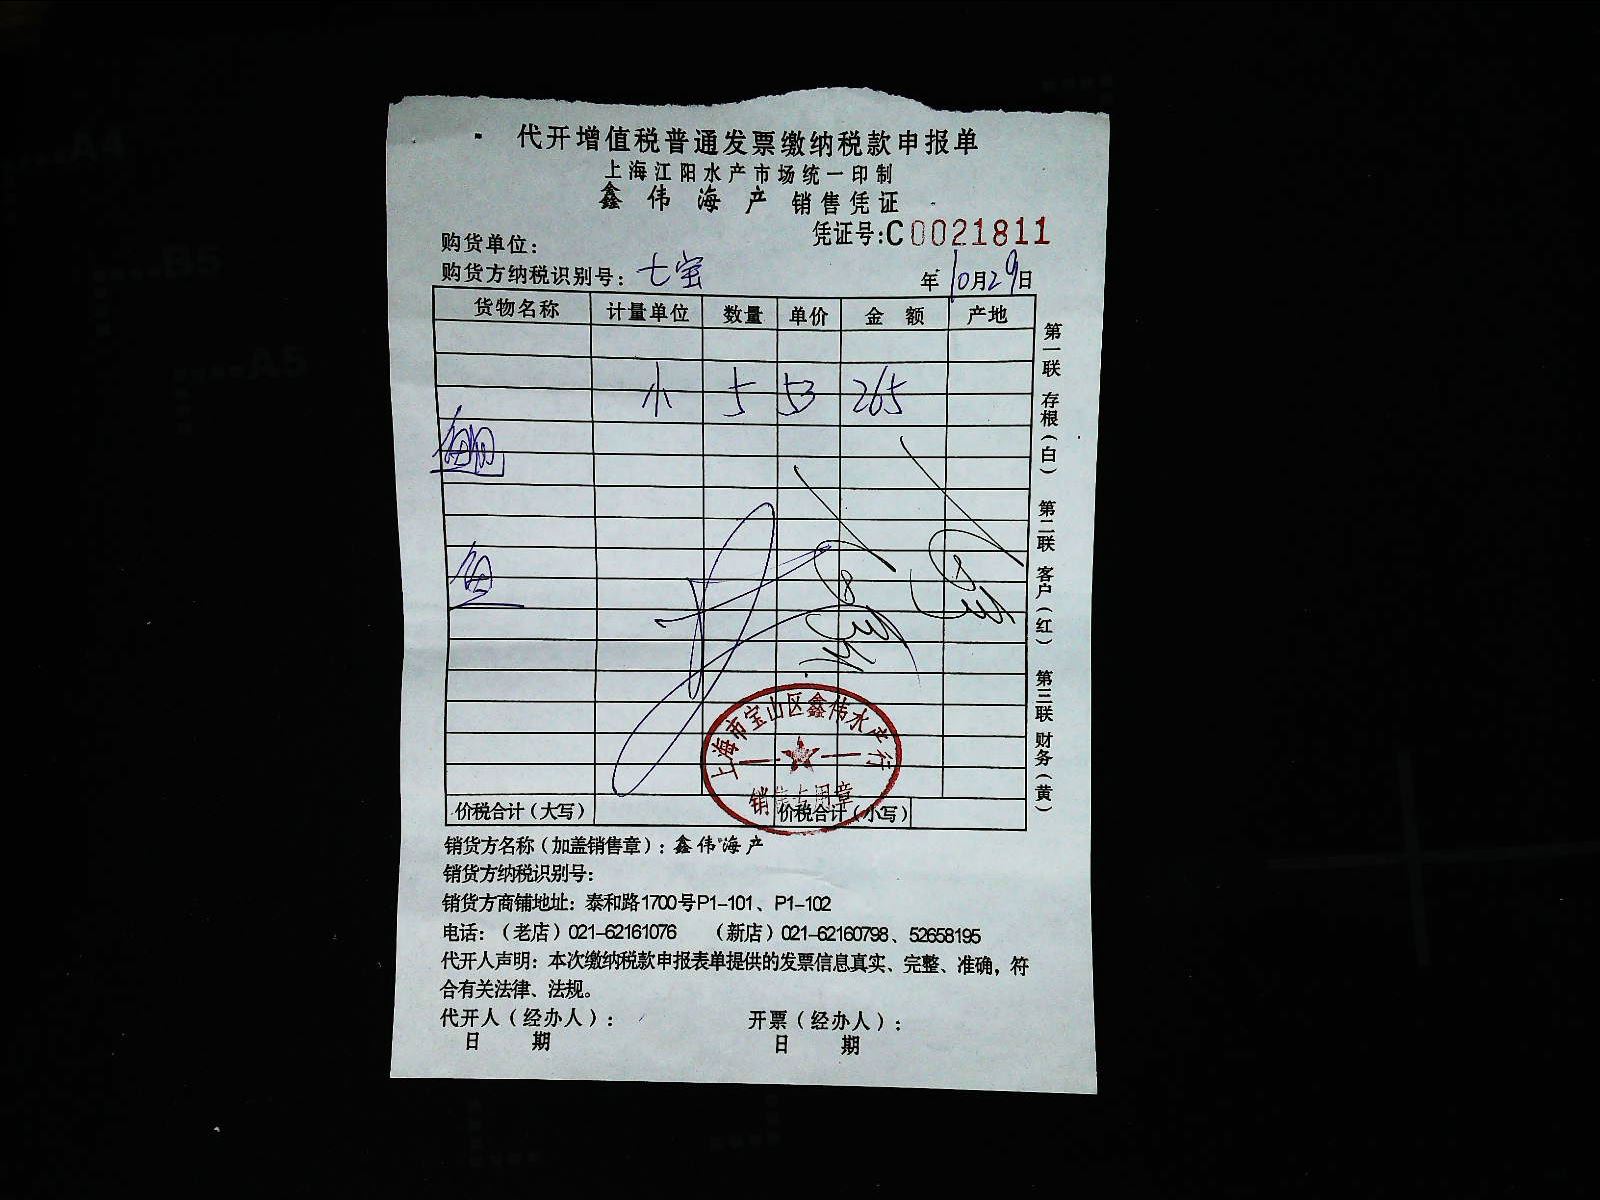 代开增值税普通发票缴纳税款申报单
上海江阳水产市场统一印制
鑫伟海产 销售凭证
凭证号:C0021811
购货单位:
购货方纳税识别号: 七宝 年10月29日
货物名称 计量单位 数量 单价 金额 产地
小 5 53 265
鲴
鱼
价税合计(大写) 价税合计(小写)
上海市宝山区鑫伟水产行
销售专用章
第一联 存根(白) 第二联 客户(红) 第三联 财务(黄)
销货方名称(加盖销售章): 鑫伟海产
销货方纳税识别号:
销货方商铺地址: 泰和路1700号P1-101、P1-102
电话:(老店)021-62161076 (新店)021-62160798、52658195
代开人声明: 本次缴纳税款申报表单提供的发票信息真实、完整、准确,符
合有关法律、法规。
代开人(经办人): 开票(经办人):
日 期 日 期
A4
B5
A5